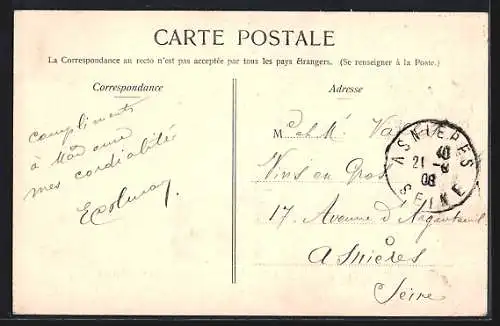 CARTE POSTALE
La Correspondance au recto n'est pas acceptée par tous les pays étrangers. (Se renseigner à la Poste.)
Correspondance
Adresse
compliments
à Madame
mes cordialités
M et Me
Vins en Gros
17. Avenue d'Argenteuil
Asnières
Seine
ASNIERES
40
21 -8
08
SEINE